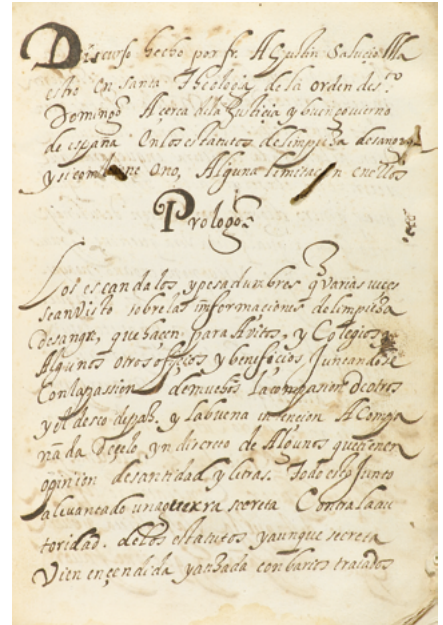 Discurso hecho por fr. Agustin Salucio Ma
estro en santa Theologia de la orden de s.to
Domingo Acerca de la Justicia y buen govierno
de españa en los estatutos de limpieza de sangre
y si combiene o no, Alguna limitacion en ellos
Prologo
Los escandalos y pesadumbres q varias veces
sean visto sobre las imformaciones de limpieza
de sangre, que hacen para Avitos, y Colegios y
Algunos otros ofiçios y beneficios Juntandose
Con la passion de muchos la compasion de otros
y el deseo de paz. y la buena intencion Acompa
ñada de celo, yn discreto de Algunos que tienen
opinion de santidad y letras. Todo esto Junto
a levantado una guerra secreta Contra la au
toridad. de los estatutos y aunque secreta
Vien ençendida con hartos tratados